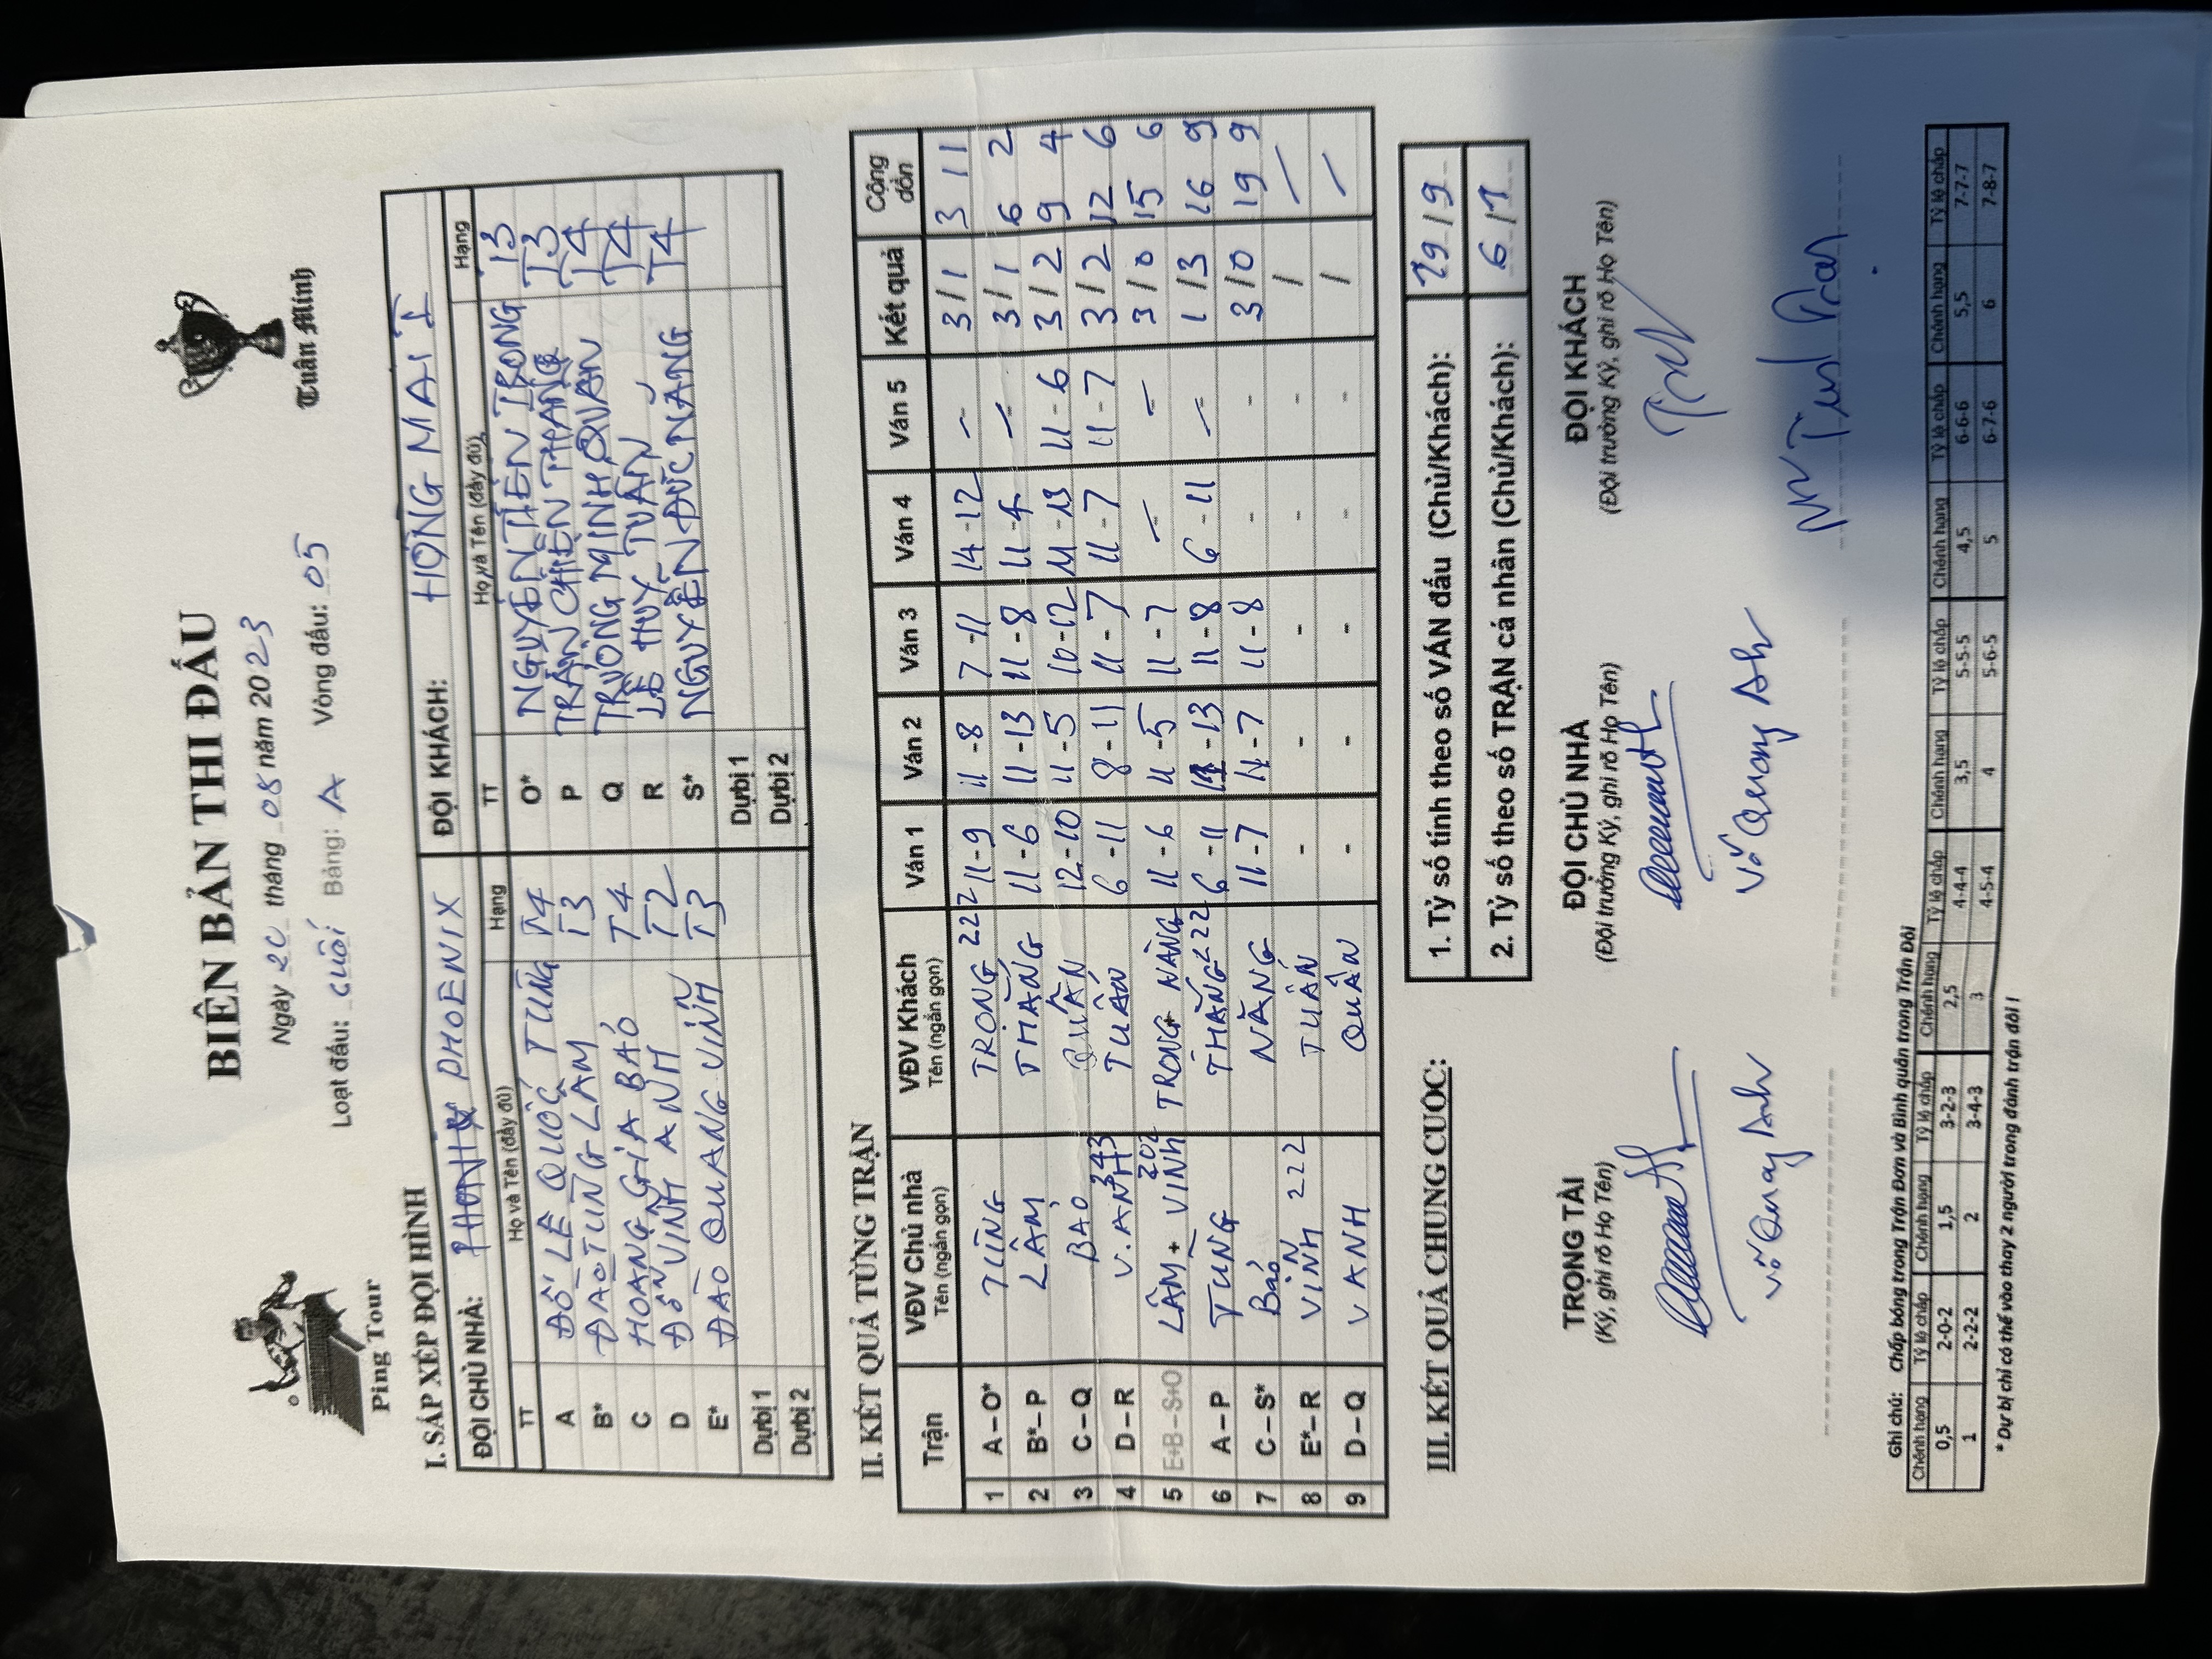 Ping Tour
BIÊN BẢN THI ĐẤU
Tuấn Minh
Ngày 20 tháng 08 năm 2023
Loạt đấu: cuối Bảng: A Vòng đấu: 05
I. SẮP XẾP ĐỘI HÌNH
ĐỘI CHỦ NHÀ: PHOENIX ĐỘI KHÁCH: HỒNG MAI I
TT Họ và Tên (đầy đủ) Hạng TT Họ và Tên (đầy đủ) Hạng
A ĐỖ LÊ QUỐC TÙNG T4 O* NGUYỄN TIẾN TRỌNG T3
B* ĐÀO TÙNG LÂM T3 P TRẦN CHIẾN THẮNG T3
C HOÀNG GIA BẢO T4 Q TRƯƠNG MINH QUÂN T4
D ĐỖ VINH ANH T2 R LÊ HUY TUẤN T4
E* ĐÀO QUANG VINH T3 S* NGUYỄN ĐỨC NĂNG T4
Dự bị 1 Dự bị 1
Dự bị 2 Dự bị 2
II. KẾT QUẢ TỪNG TRẬN
Trận VĐV Chủ nhà Tên (ngắn gọn) VĐV Khách Tên (ngắn gọn) Ván 1 Ván 2 Ván 3 Ván 4 Ván 5 Kết quả Cộng dồn
1 A – O* TÙNG TRỌNG 222 11 - 9 11 - 8 7 - 11 14 - 12 - 3 / 1 3 11
2 B* – P LÂM THẮNG 11 - 6 11 - 13 11 - 8 11 - 4 - 3 / 1 6 2
3 C – Q BẢO QUÂN 12 - 10 11 - 5 10 - 12 11 - 13 11 - 6 3 / 2 9 4
4 D – R V.ANH 343 TUẤN 6 - 11 8 - 11 11 - 7 11 - 7 11 - 7 3 / 2 12 6
5 E+B – S+O LÂM + VINH 202 TRỌNG + NĂNG 11 - 6 11 - 5 11 - 7 - - 3 / 0 15 6
6 A – P TÙNG THẮNG 222 6 - 11 11 - 13 11 - 8 6 - 11 - 1 / 3 16 9
7 C – S* Bảo NĂNG 11 - 7 11 - 7 11 - 8 - - 3 / 0 19 9
8 E* – R VINH 222 TUẤN - - - - - / /
9 D – Q V ANH QUÂN - - - - - / /
III. KẾT QUẢ CHUNG CUỘC:
1. Tỷ số tính theo số VÁN đấu (Chủ/Khách): 19 / 9
2. Tỷ số theo số TRẬN cá nhân (Chủ/Khách): 6 / 1
TRỌNG TÀI ĐỘI CHỦ NHÀ ĐỘI KHÁCH
(Ký, ghi rõ Họ Tên) (Đội trưởng Ký, ghi rõ Họ Tên) (Đội trưởng Ký, ghi rõ Họ Tên)
Võ Quang Anh Võ Quang Anh
Ghi chú: Chấp bóng trong Trận Đơn và Bình quân trong Trận Đôi
Chênh hạng Tỷ lệ chấp Chênh hạng Tỷ lệ chấp Chênh hạng Tỷ lệ chấp Chênh hạng Tỷ lệ chấp Chênh hạng Tỷ lệ chấp Chênh hạng Tỷ lệ chấp
0,5 2-0-2 1,5 3-2-3 2,5 4-4-4 3,5 5-5-5 4,5 6-6-6 5,5 7-7-7
1 2-2-2 2 3-4-3 3 4-5-4 4 5-6-5 5 6-7-6 6 7-8-7
* Dự bị chỉ có thể vào thay 2 người trong đánh trận đôi !